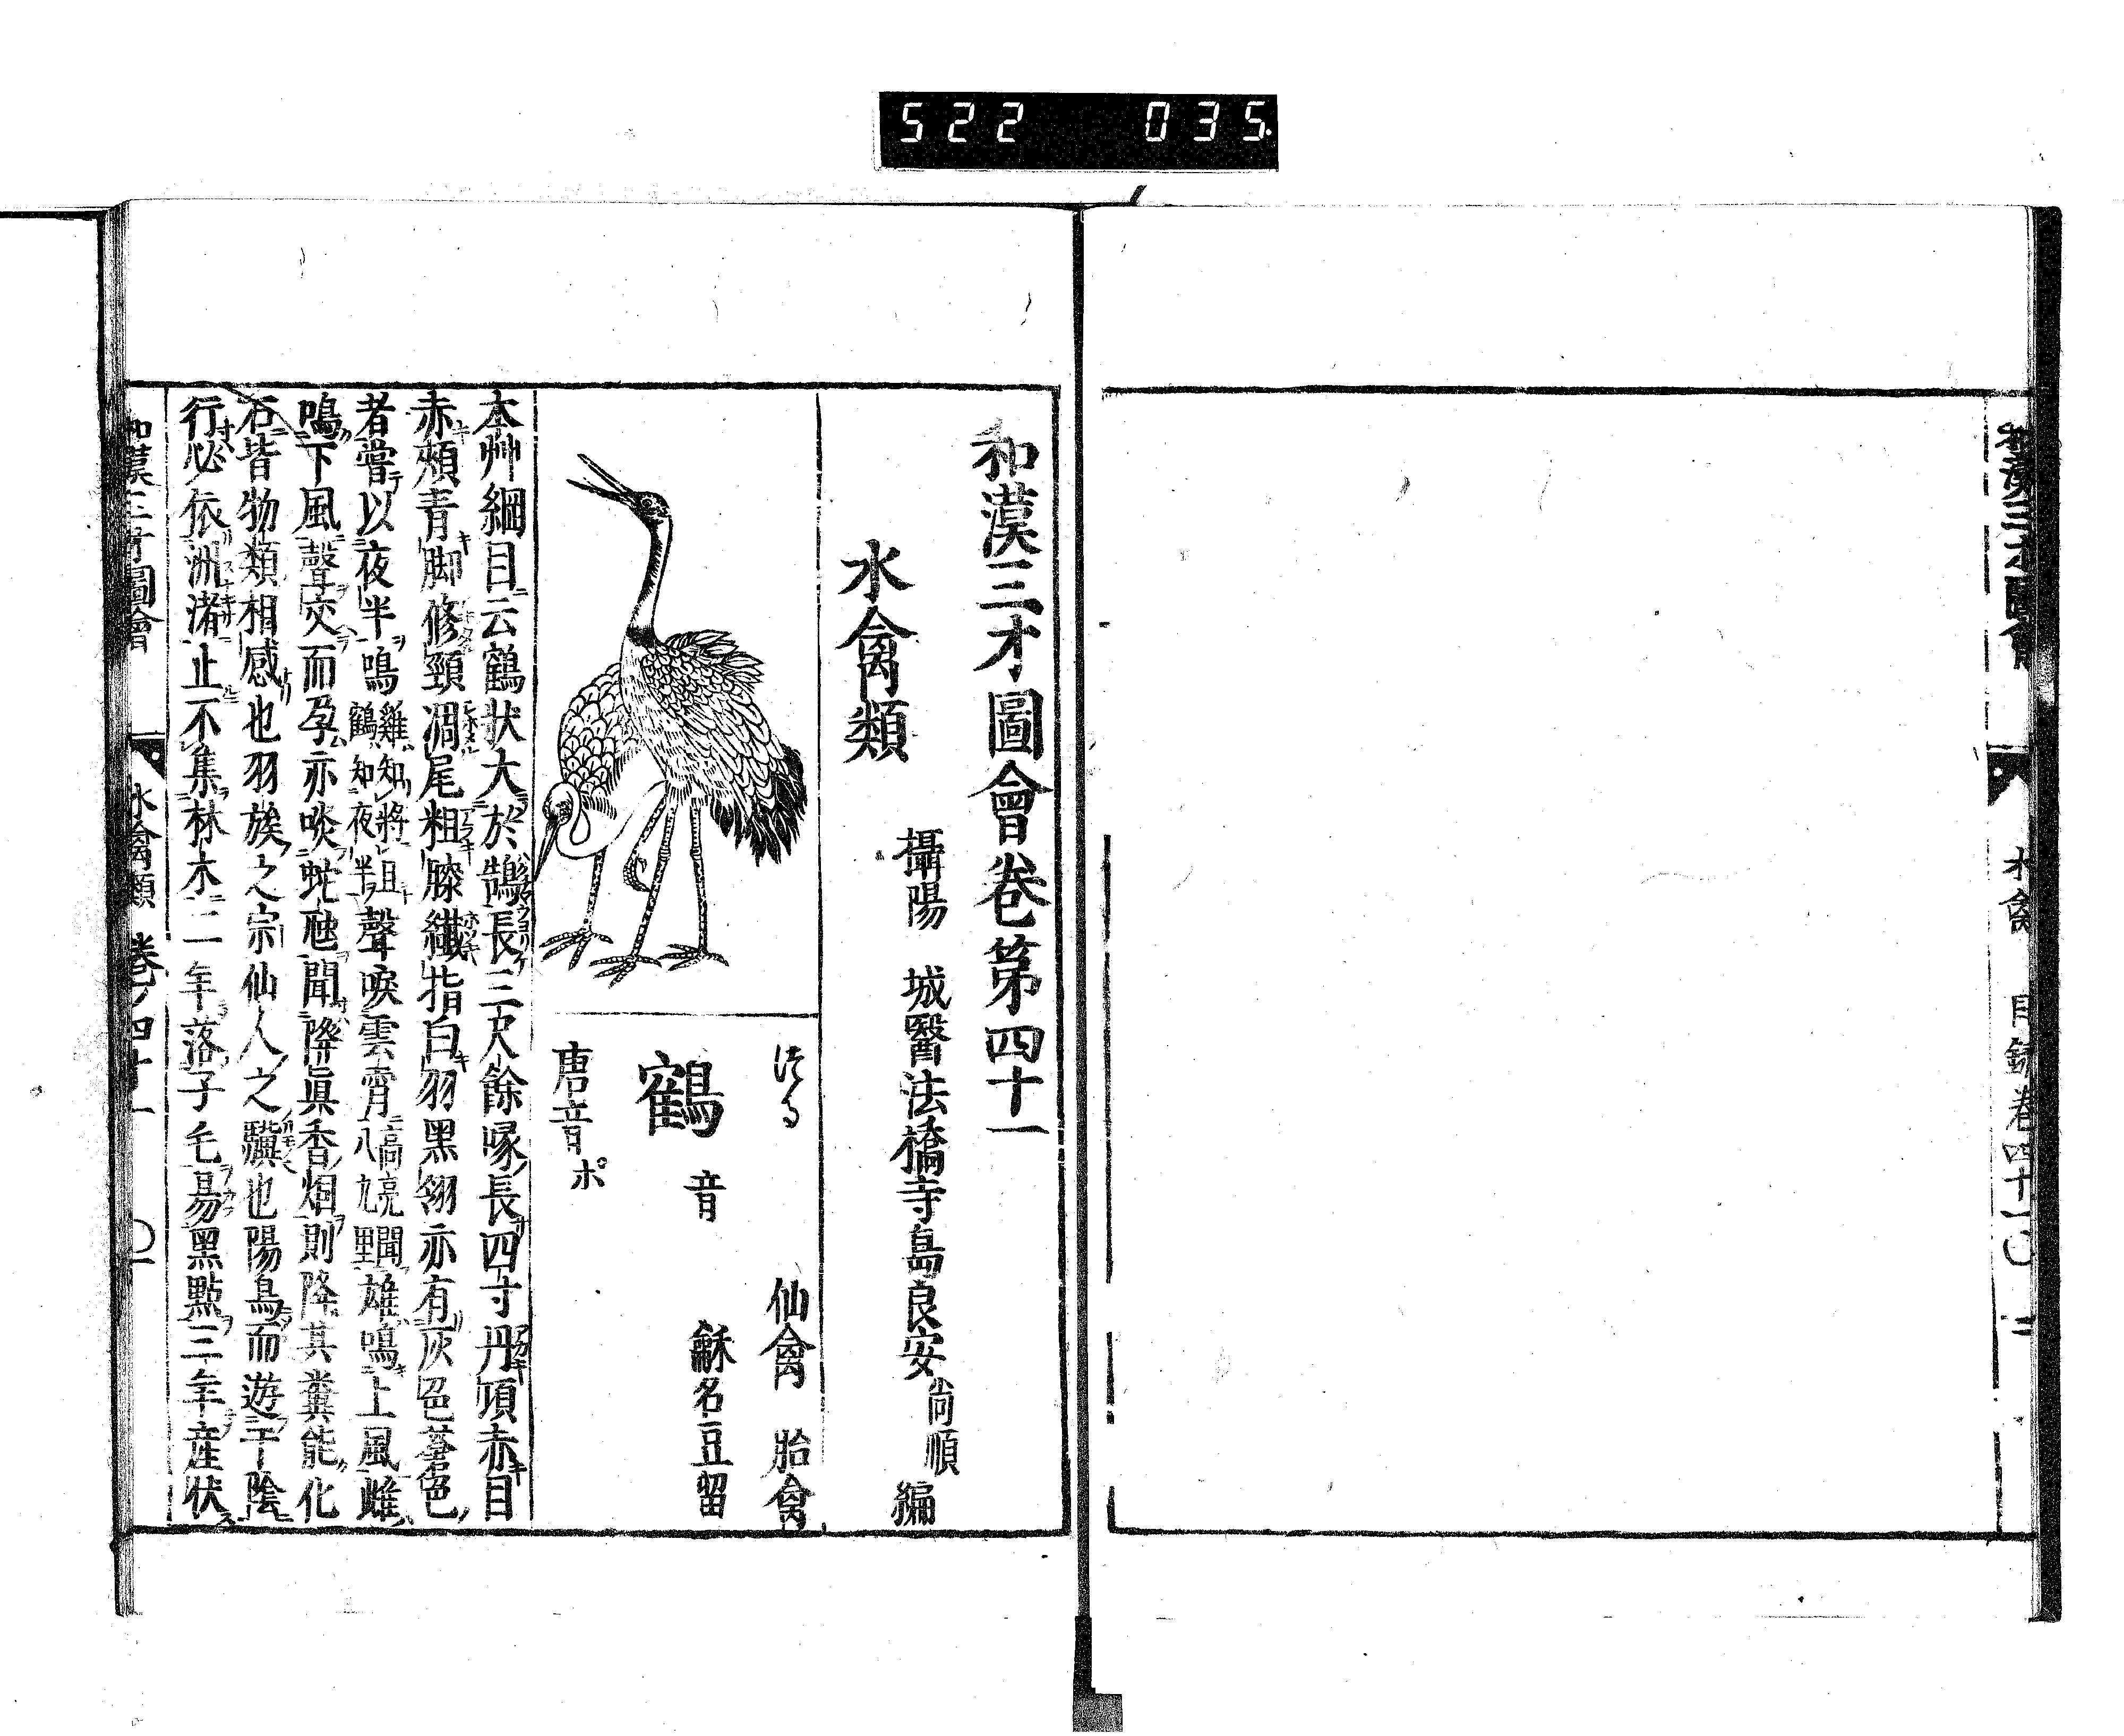 522 035
和漢三才圖會
水禽 目録 卷四十一 〇 二
和漢三才圖會卷第四十一
攝陽 城醫法橋寺島良安尚順 編
水禽類
つる
仙禽 胎禽
鶴 音
龢名豆留
唐音ポ
本艸綱目云鶴狀大於鵠長三尺餘喙長四寸丹項赤目
赤頰青脚修頸凋尾粗膝纎指白羽黑翎亦有灰色蒼色
者嘗以夜半鳴雞知將旦鶴知夜半聲唳雲霄高亮聞八九里雄鳴上風雌
鳴下風聲交而孕亦啖蛇虺聞降眞香烟則降其糞能化
石皆物類相感也羽族之宗仙人之驥也陽鳥而遊于陰
行必依洲渚止不集林木二年落子毛易黑點三年産伏
和漢三才圖會 水禽類 卷ノ四十一 〇一